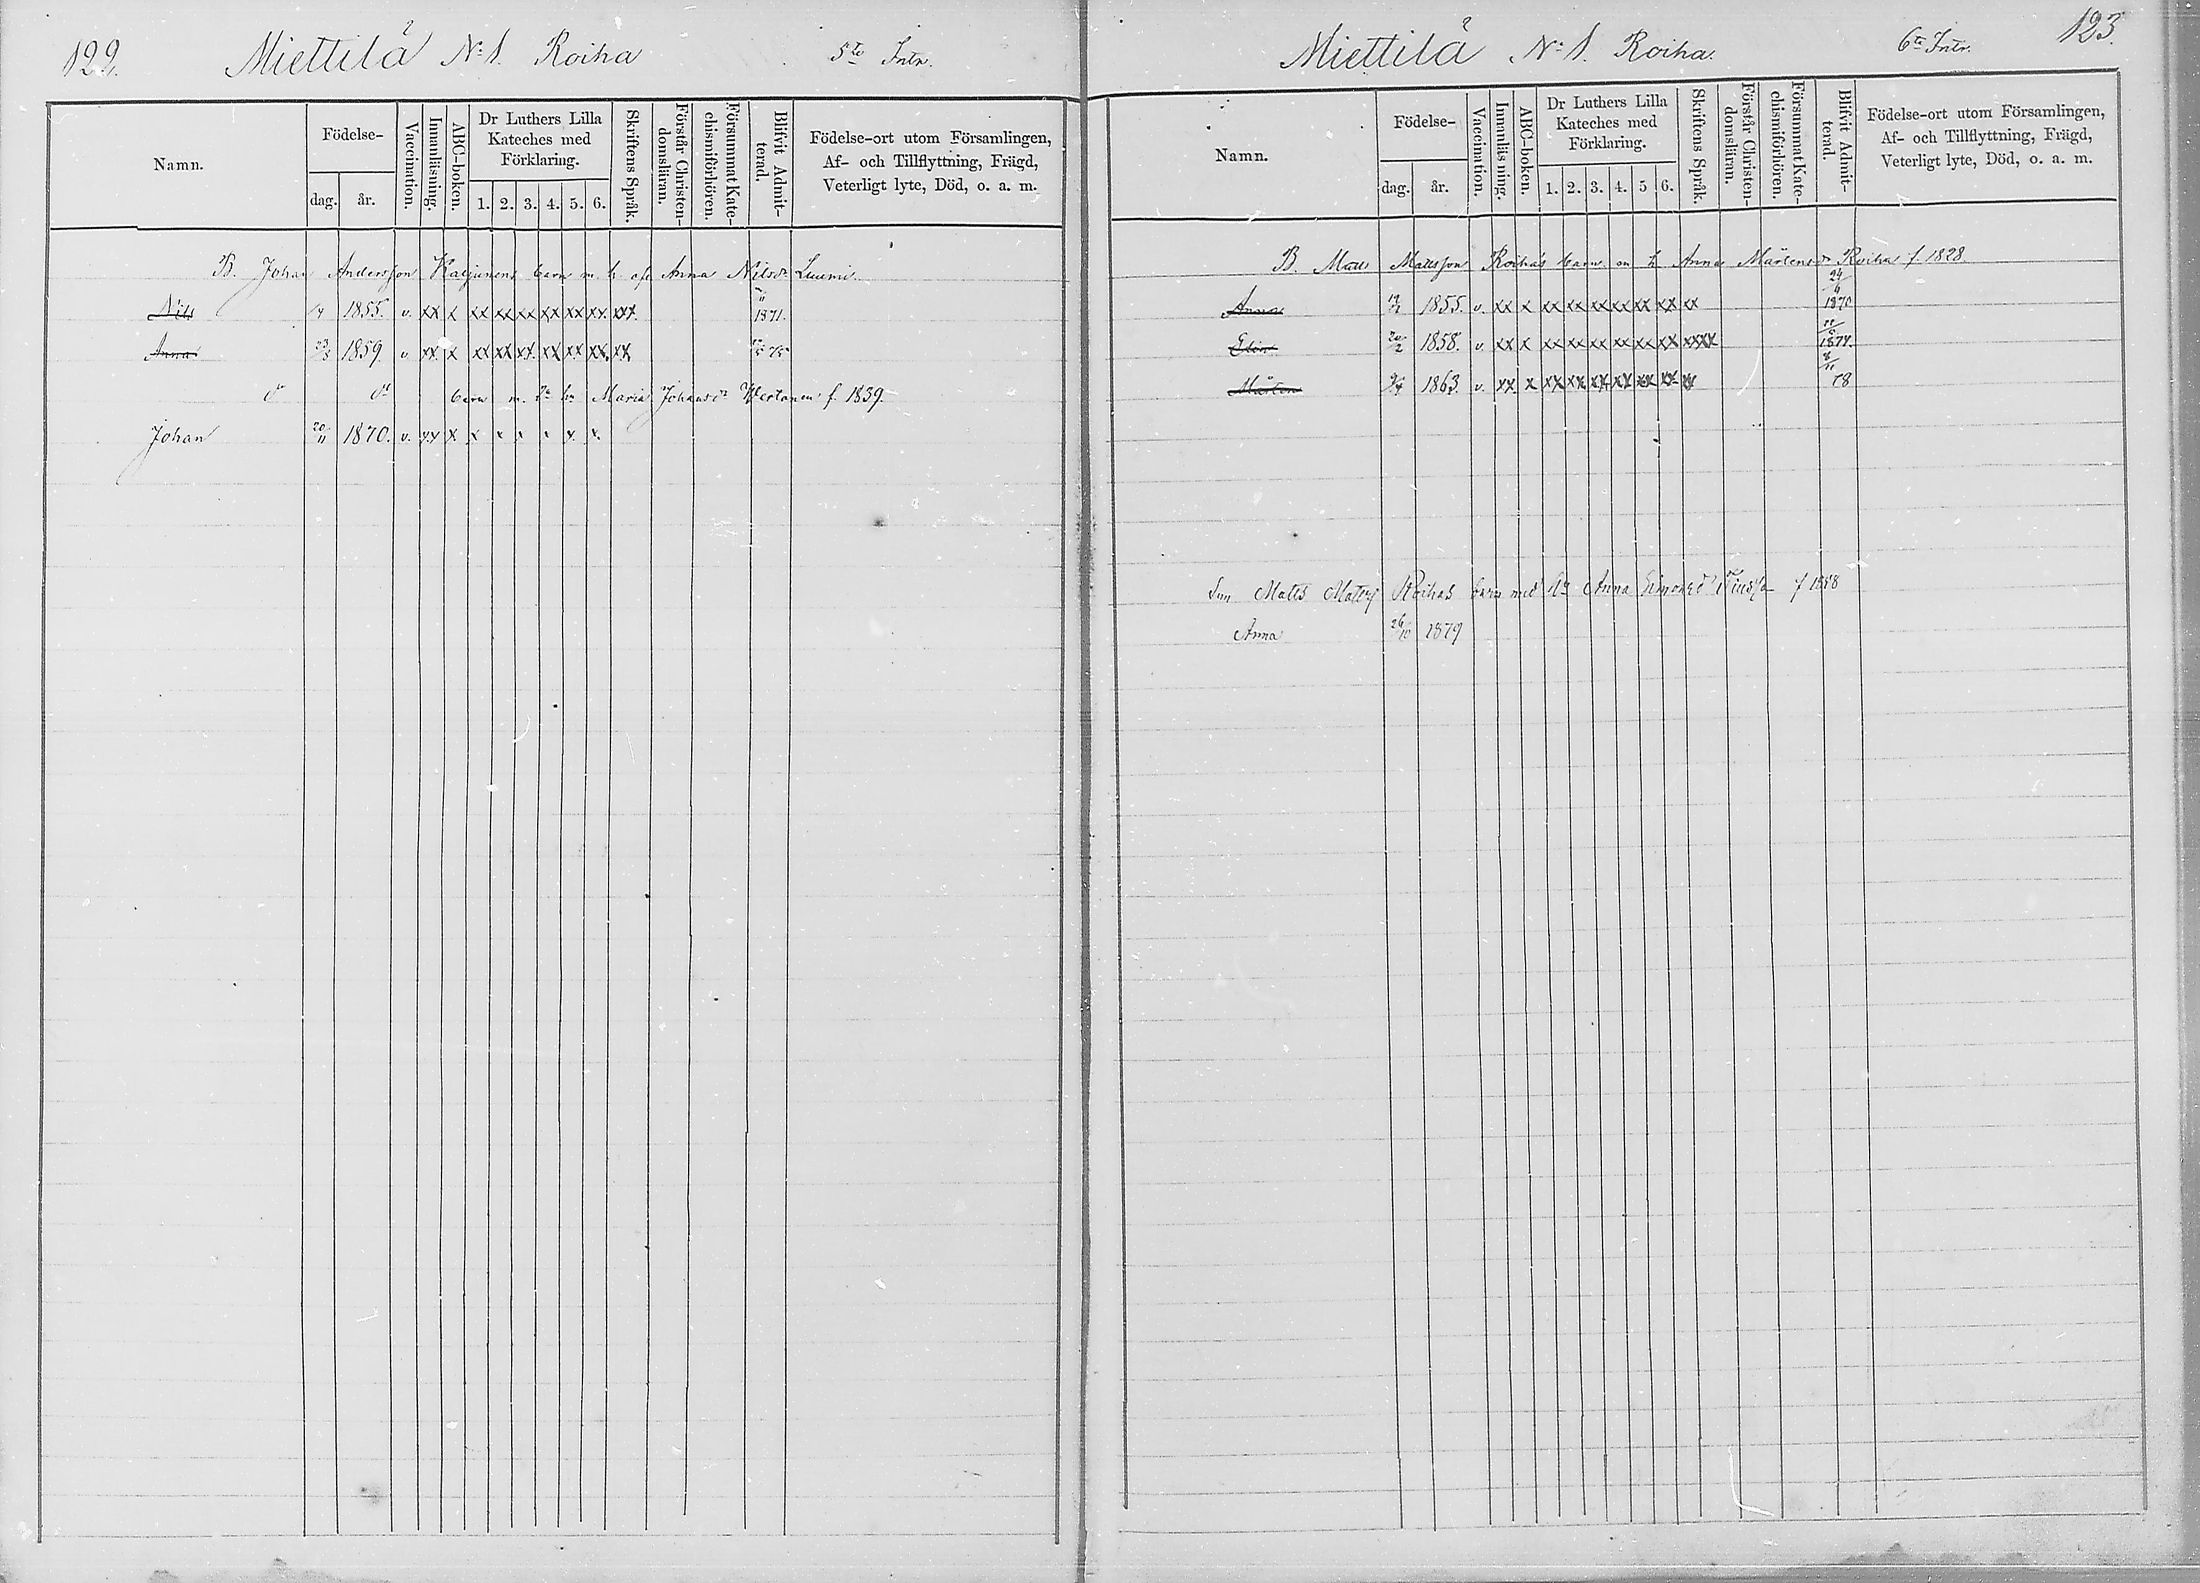 122. Miettilä N:1. Roiha 5te Intr.
Namn.
Födelse-
dag. år.
Vaccination.
Innanläsning.
ABC-boken.
Dr Luthers Lilla Kateches med Förklaring.
1. 2. 3. 4. 5. 6.
Skriftens Språk.
Förstår Christendomsläran.
Försummat Katechismiförhören.
Blifvit Admitterad.
Födelse-ort utom Församlingen, Af- och Tillflyttning, Frägd, Veterligt lyte, Död, o. a. m.
B. Johan Andersson Karjunens barn m. h. afl. Anna Nilsdr Luumi.
Nils 1855. v. xx x xx xx xx xx xx xx. xxx. 1871.
Anna 23/3 1859 v xx x xx xx xx. xx xx xx. xx 75
dn dn barn m. Maria Johansdr Wertanen f. 1839.
Johan 20/11 1870. v. xx x x x x x x. x.
Miettilä N:1. Roiha. 6te Intr. 123.
Namn.
Födelse-
dag. år.
Vaccination.
Innanläsning.
ABC-boken.
Dr Luthers Lilla Kateches med Förklaring.
1. 2. 3. 4. 5 6.
Skriftens Språk.
Förstår Christendomsläran.
Försummat Katechismiförhören.
Blifvit Admitterad.
Födelse-ort utom Församlingen, Af- och Tillflyttning, Frägd, Veterligt lyte, Död, o. a. m.
B. Matts Mattsson Roihas barn m h Anna Mårtensdr Roiha f. 1828.
Anna 1855. v. xx x xx xx xx xx xx xx xx 1870
Elin 20/2 1858. v. xx x xx xx xx xx xx xx xxx 1874.
Mårten 1863 v. xx. x xx xx xx xx xx xx xx 8/11 78
Son Matts Matts Roihas barn med h. Anna Simonsd f 1858
Anna 26/10 1879